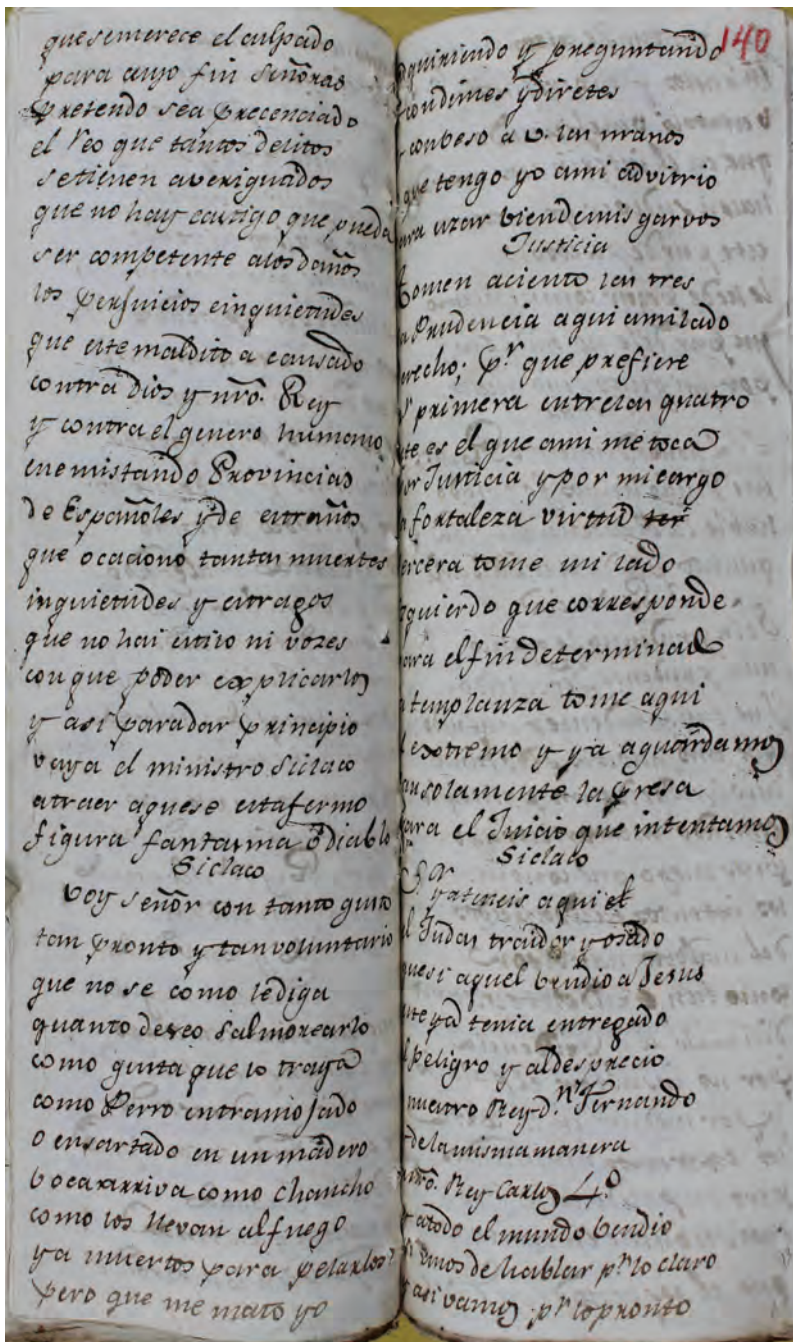 quesemerece el culpado
para cuyo fin señoras
pretendo sea precenciado
el reo que tantos delitos
setienen averiguados
que no hay castigo que pueda
ser competente alosdaños
los perjuicios einquietudes
que estemaldito a causado
contra Dios y nrō. Rey
y contra el genero humano
enemistando Provincias
de Españoles yde estraños
que ocacionó tantas muertes
inquietudes y estragos
que no hai estilo ni vozes
con que poder explicarlos
y asi paradar principio
vaya el ministro Siclaco
atraer aquese estafermo
figura fantasma o Diablo
Siclaco
Voy señor con tanto gusto
tan pronto y tan voluntario
que no se como lediga
quanto deseo salmorearlo
como gusta que lo traiga
como Perro entramojado
o ensartado en un madero
bocaarriva como chancho
como los llevan alfuego
ya muertos para pelarlos
pero que me mato yo
140
quiriendo y preguntando
condimes ydiretes
conbeso a v. las manos
que tengo yo ami advitrio
ara uzar biendemis garvos
Justicia
tomen aciento las tres
a Prudencia aqui amilado
erecho; pr. que prefiere
primera entrelas quatro
te es el que ami me toca
or Justicia y por mi cargo
a fortaleza virtud ter
ercera tome mi lado
zquierdo que corresponde
ara elfin determinado
templanza tome aqui
l extremo y ya aguardamos
ansolamente la presa
ara el Juicio que intentamos
Siclaco
Sr. yateneis aqui el
l Judas traidor yosado
quesi aquel bendio a Jesus
ste ya tenia entregado
l peligro y aldesprecio
nuestro Rey Dn. Fernando
delamisma manera
nrō. Rey Carlos 4.º
atodo el mundo bendio
mos dehablar pr. lo claro
asi vamos pr. lo pronto